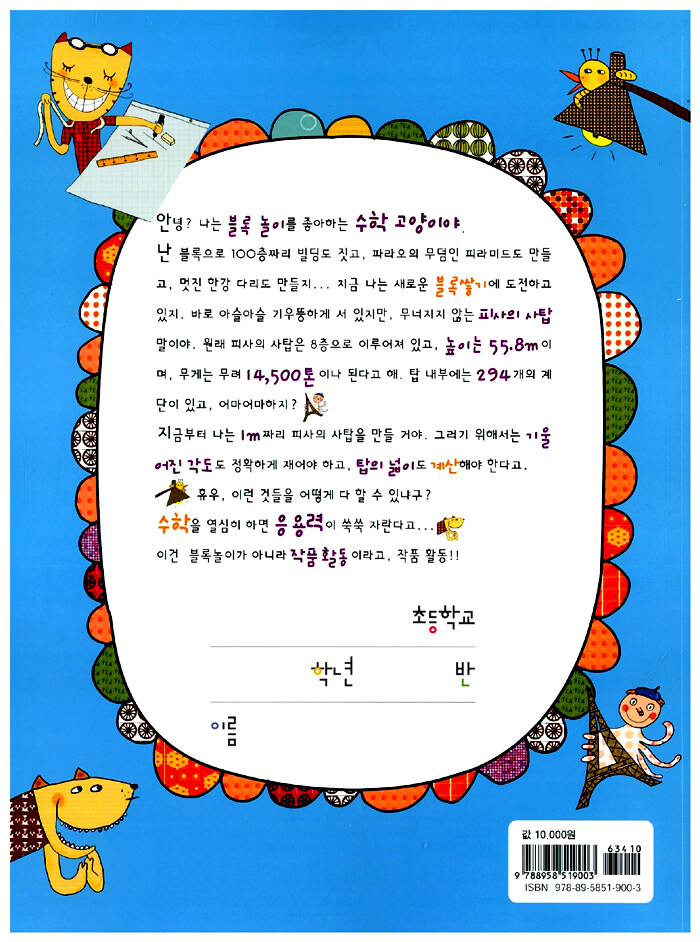 안녕? 나는 블록 놀이를 좋아하는 수학 고양이야.
난 블록으로 100층짜리 빌딩도 짓고, 파라오의 무덤인 피라미드도 만들
고, 멋진 한강 다리도 만들지... 지금 나는 새로운 블록쌓기에 도전하고
있지. 바로 아슬아슬 기우뚱하게 서 있지만, 무너지지 않는 피사의 사탑
말이야. 원래 피사의 사탑은 8층으로 이루어져 있고, 높이는 55.8m이
며, 무게는 무려 14,500톤이나 된다고 해. 탑 내부에는 294개의 계
단이 있고, 어마어마하지?
지금부터 나는 1m짜리 피사의 사탑을 만들 거야. 그러기 위해서는 기울
어진 각도도 정확하게 재어야 하고, 탑의 넓이도 계산해야 한다고.
휴우, 이런 것들을 어떻게 다 할 수 있냐구?
수학을 열심히 하면 응용력이 쑥쑥 자란다고...
이건 블록놀이가 아니라 작품 활동이라고, 작품 활동!!
초등학교
학년 반
이름
값 10,000원
63410
9 788958 519003
ISBN 978-89-5851-900-3